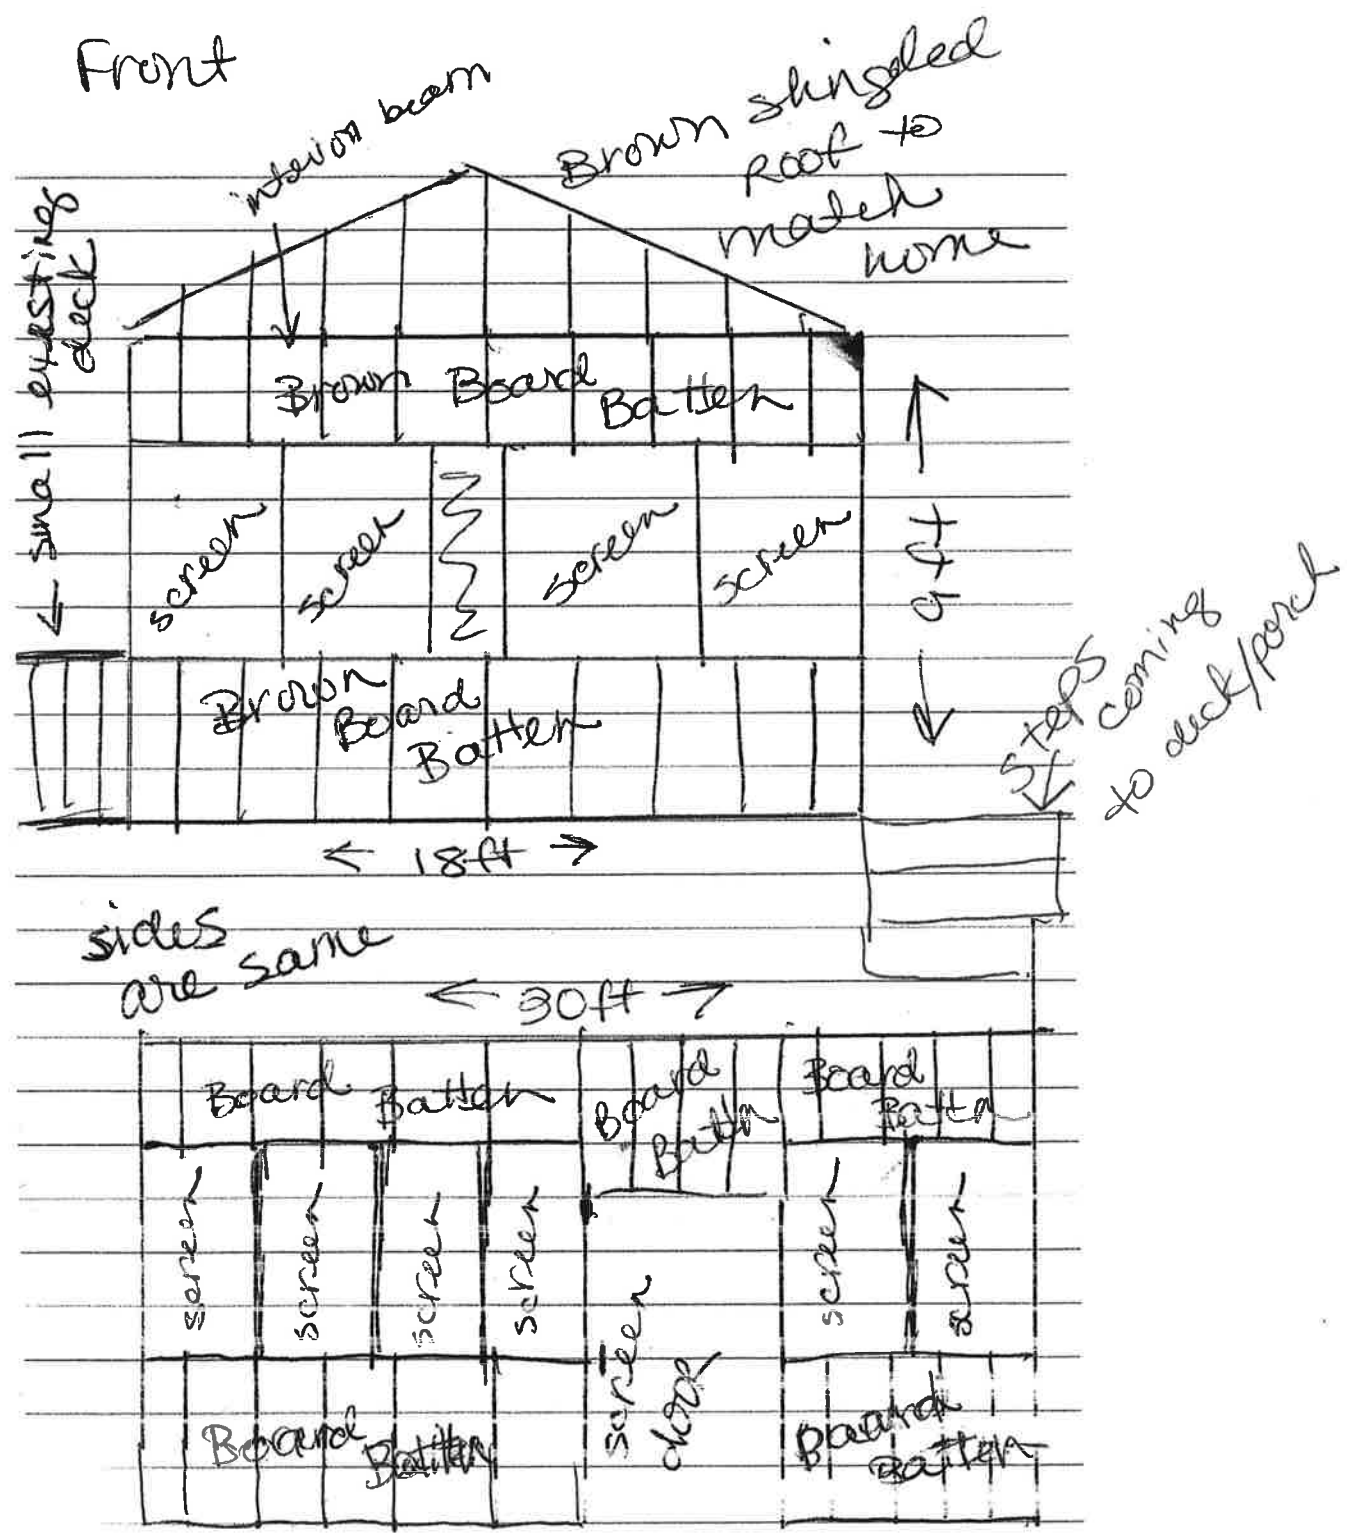 Front
interior beam
Brown shingled
Roof to
match
home
← small existing
deck
Brown Board
Batten
screen
screen
screen
screen
← 9 ft →
Steps
coming
to deck/porch
Brown
Board
Batten
← 18 ft →
sides
are same
← 30ft →
Board Batten
Board
Battn
Board
Battn
screen
screen
screen
screen
screen
door
screen
screen
Board
Batten
Board
Batten